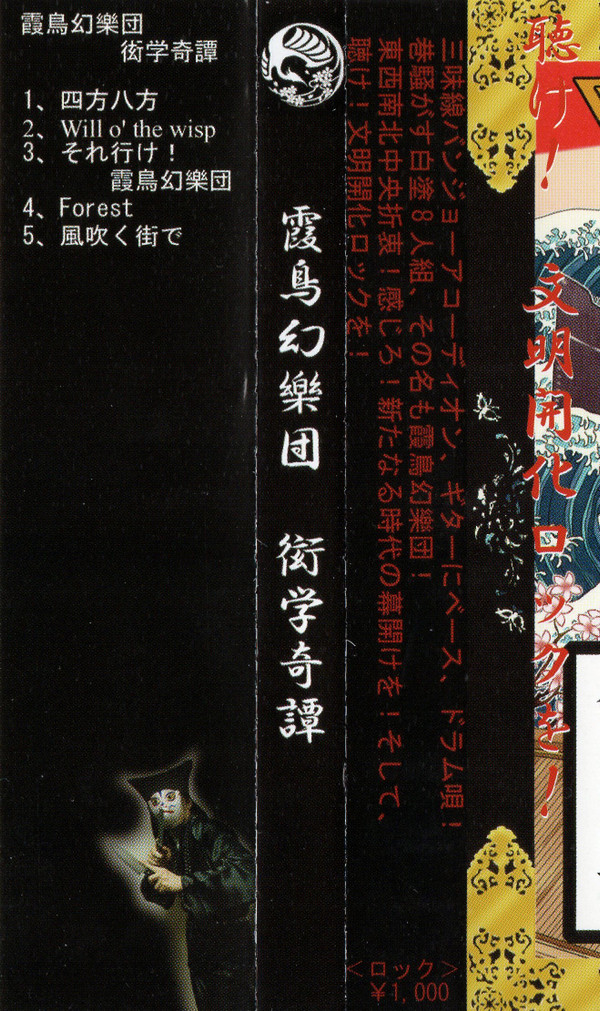 霞鳥幻樂団
衒学奇譚
1、四方八方
2、Will o' the wisp
3、それ行け！
霞鳥幻樂団
4、Forest
5、風吹く街で
霞鳥幻樂団　衒学奇譚
三味線バンジョーアコーディオン、ギターにベース、ドラム唄！
巷騒がす白塗８人組、その名も霞鳥幻樂団！
東西南北中央折衷！感じろ！新たなる時代の幕開けを！そして、
聴け！文明開化ロックを！
＜ロック＞
￥1,000
聴け！文明開化ロックを！